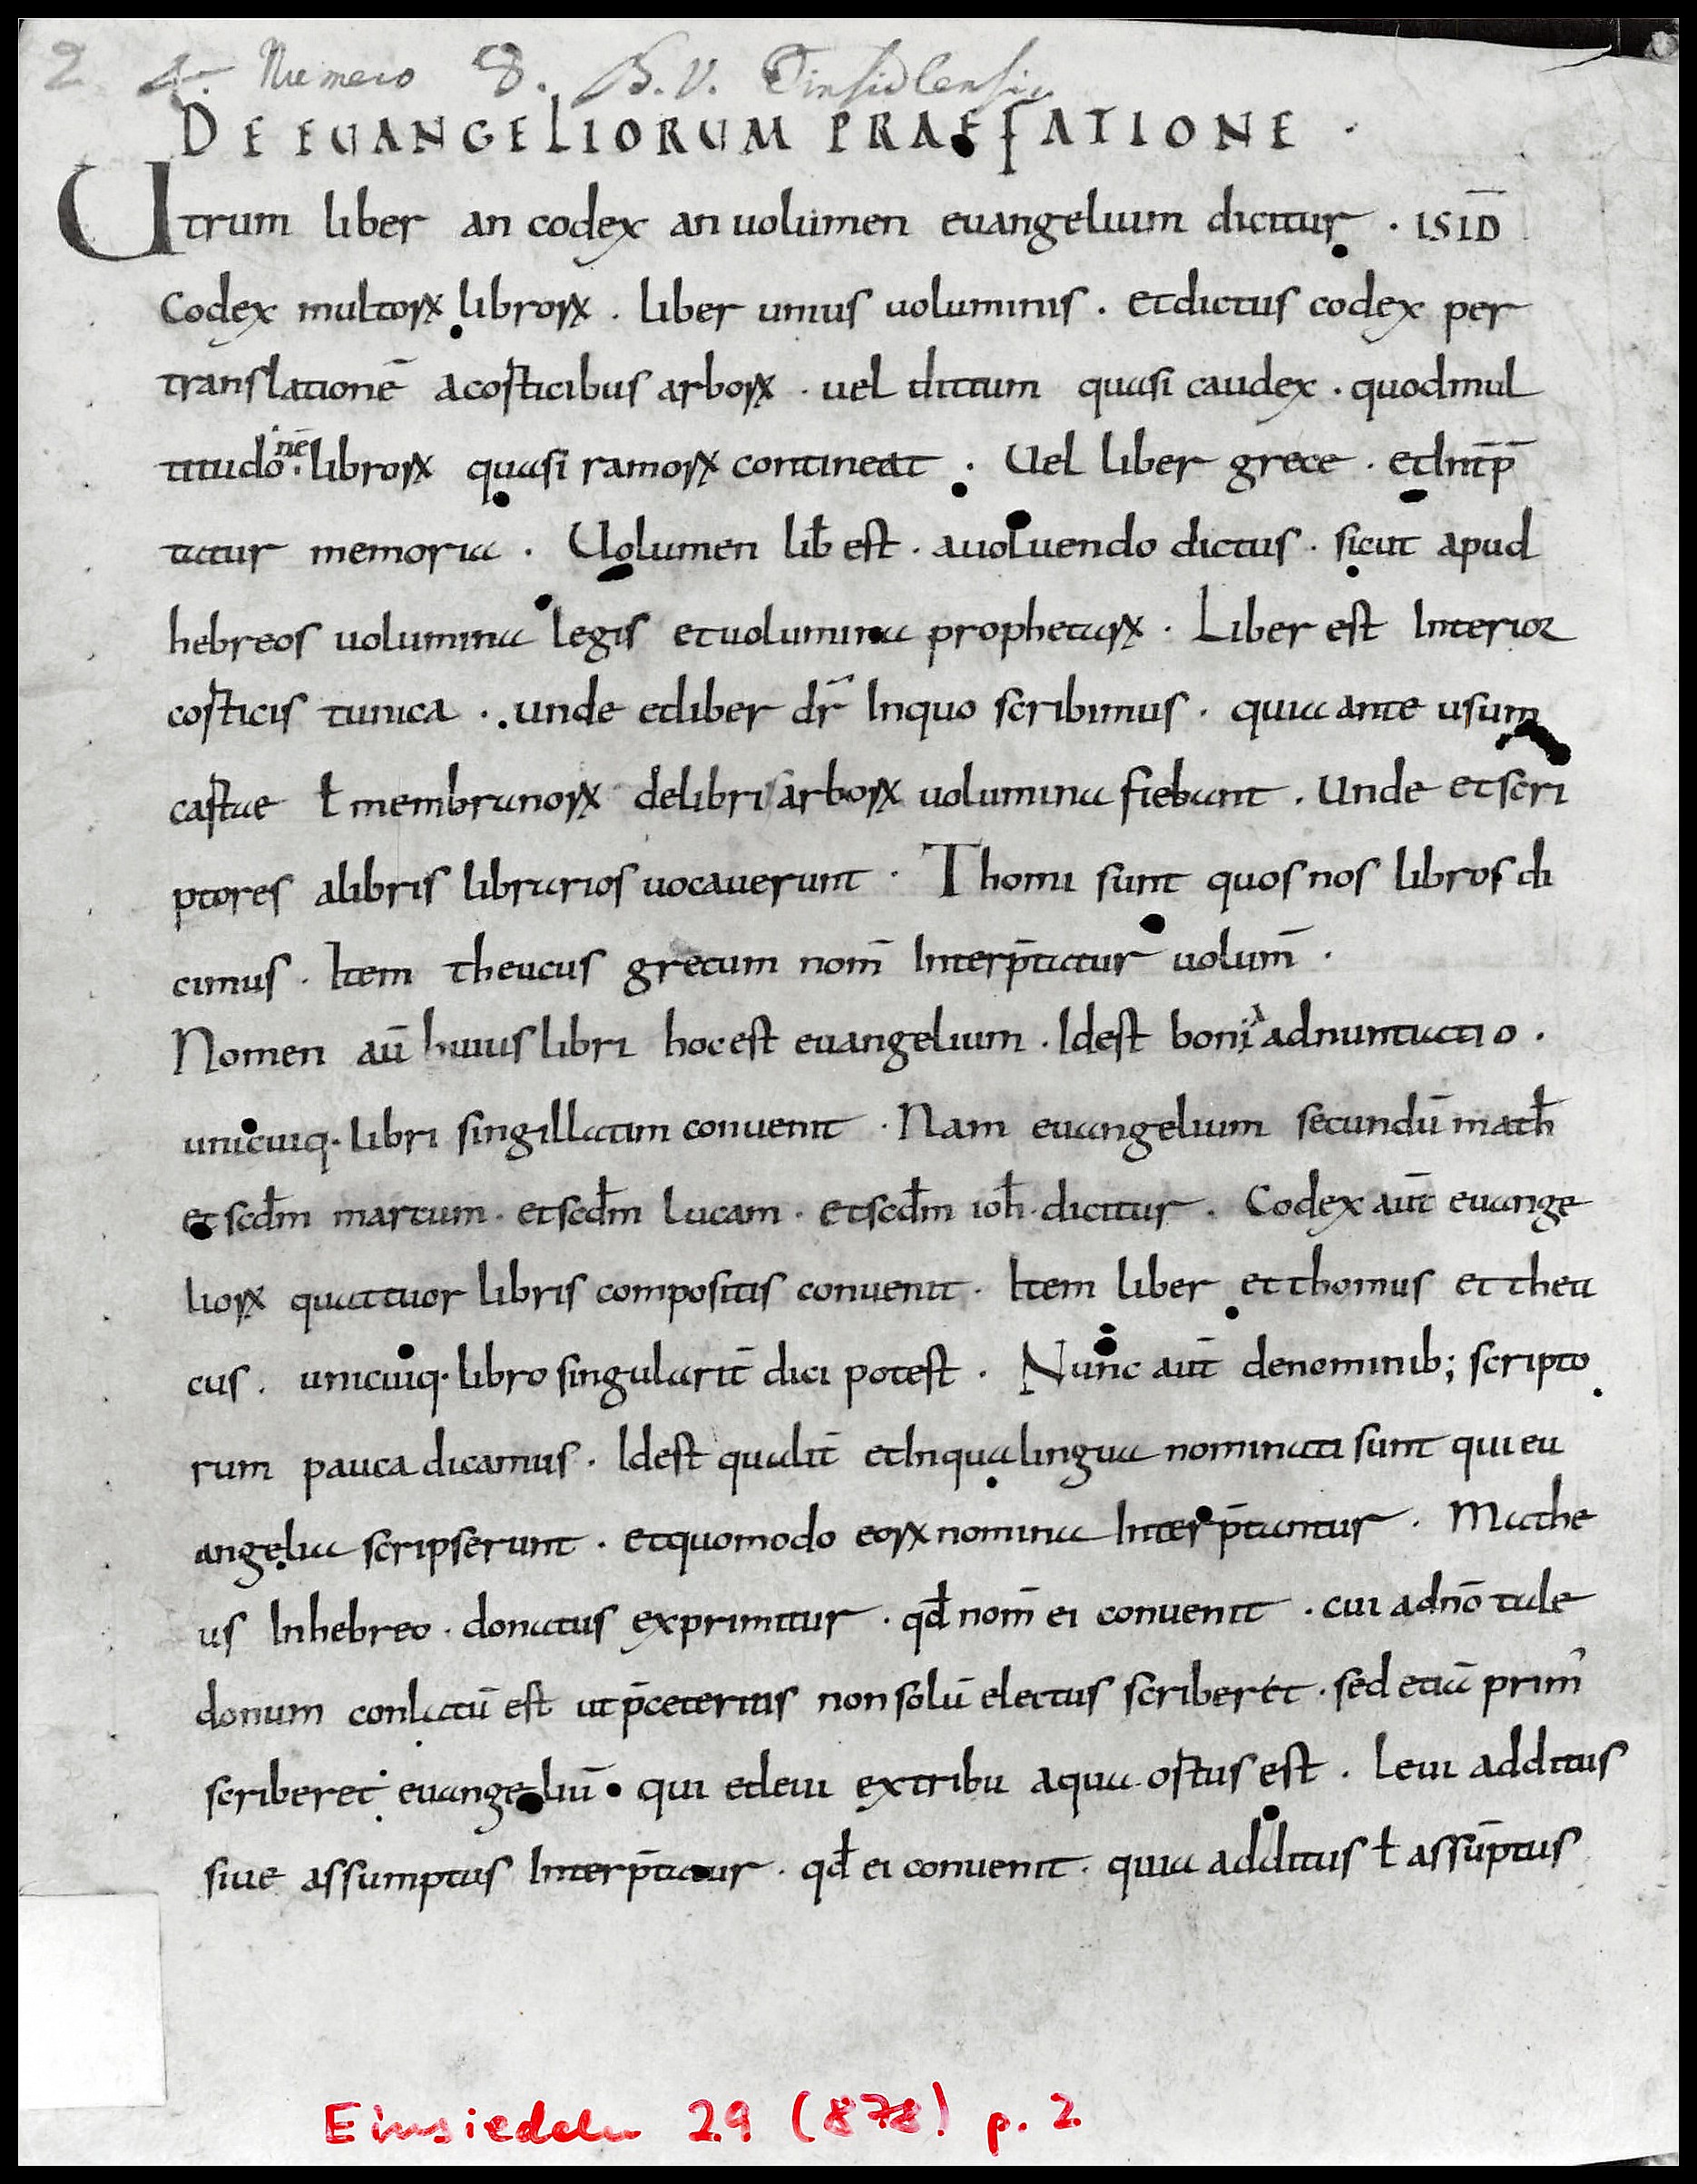 2 Numero 8. B.V. Einsidlensis
DE EUANGELIORUM PRAEFATIONE .
Utrum liber an codex an uolumen euangelium dicitur . ISID̅
Codex multoꝝ libroꝝ . liber unius uoluminis . et dictus codex per
translationē a costicibus arboꝝ . uel dictum quasi caudex . quod mul
titudo nē libroꝝ quasi ramoꝝ contineat . Uel liber grece . et Int̄p̄
tatur memoria . Uolumen lib̄ est . a uoluendo dictus . sicut apud
hebreos uolumina legis et uolumina prophetaꝝ . Liber est Interior
costicis tunica . unde et liber dr̄ In quo scribimus . quia ante usum
castae ł membranoꝝ de libris arboꝝ uolumina fiebant . Unde et scri
ptores a libris librarios uocauerunt . Thomi sunt quos nos libros di
cimus . Item theucus grecum nom̄ Interp̄tatur uolum̄ .
Nomen aū huius libri hoc est euangelium . Id est boni adnuntiatio .
unicuiq· libri singillatim conuenit . Nam euangelium secundū math̄
et scd̄m marcum . et scd̄m lucam . et scd̄m ioh̄ . dicitur . Codex aut̄ euange
lioꝝ quattuor libris compositis conuenit . Item liber et thomus et theu
cus . unicuiq· libro singularit̄ dici potest . Nunc aut̄ de nominib; scripto
rum pauca dicamus . Id est qualit̄ et In qua lingua nominati sunt qui eu
angelia scripserunt . et quomodo eoꝝ nomina Interp̄tantur . Mathe
us In hebreo . donatus exprimitur . qd̄ nom̄ ei conuenit . cui ad nō tale
donum conlatū est ut p̄ ceteris non solū electus scriberet . sed etiā prim̄
scriberet euangeliū . qui et leui ex tribu a qua ostus est . leui additus
siue assumptus Interp̄tatur . qd̄ ei conuenit . quia additus ł assūptus
Einsiedeln 29 (878) p. 2